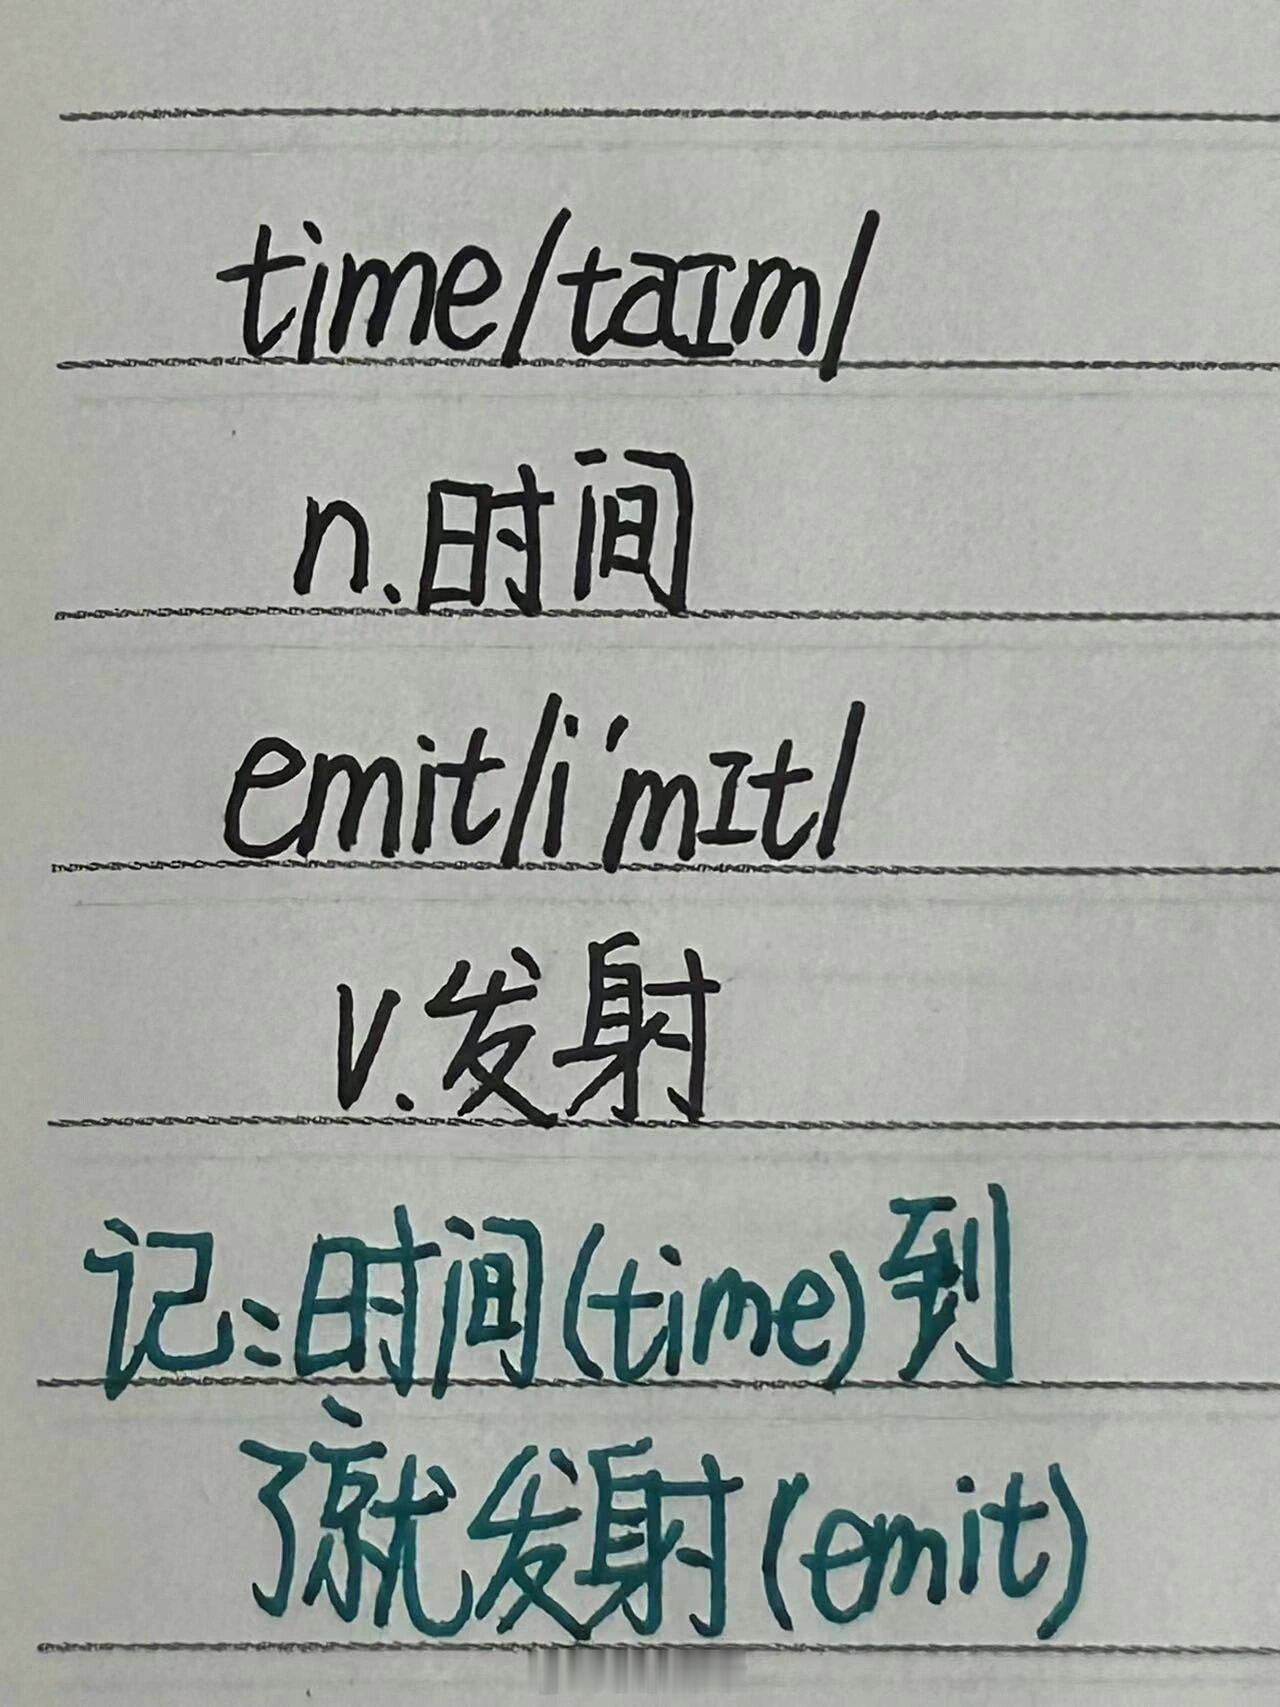 time/taɪm/
n.时间
emit/i'mɪt/
v.发射
记:时间(time)到
了就发射(emit)